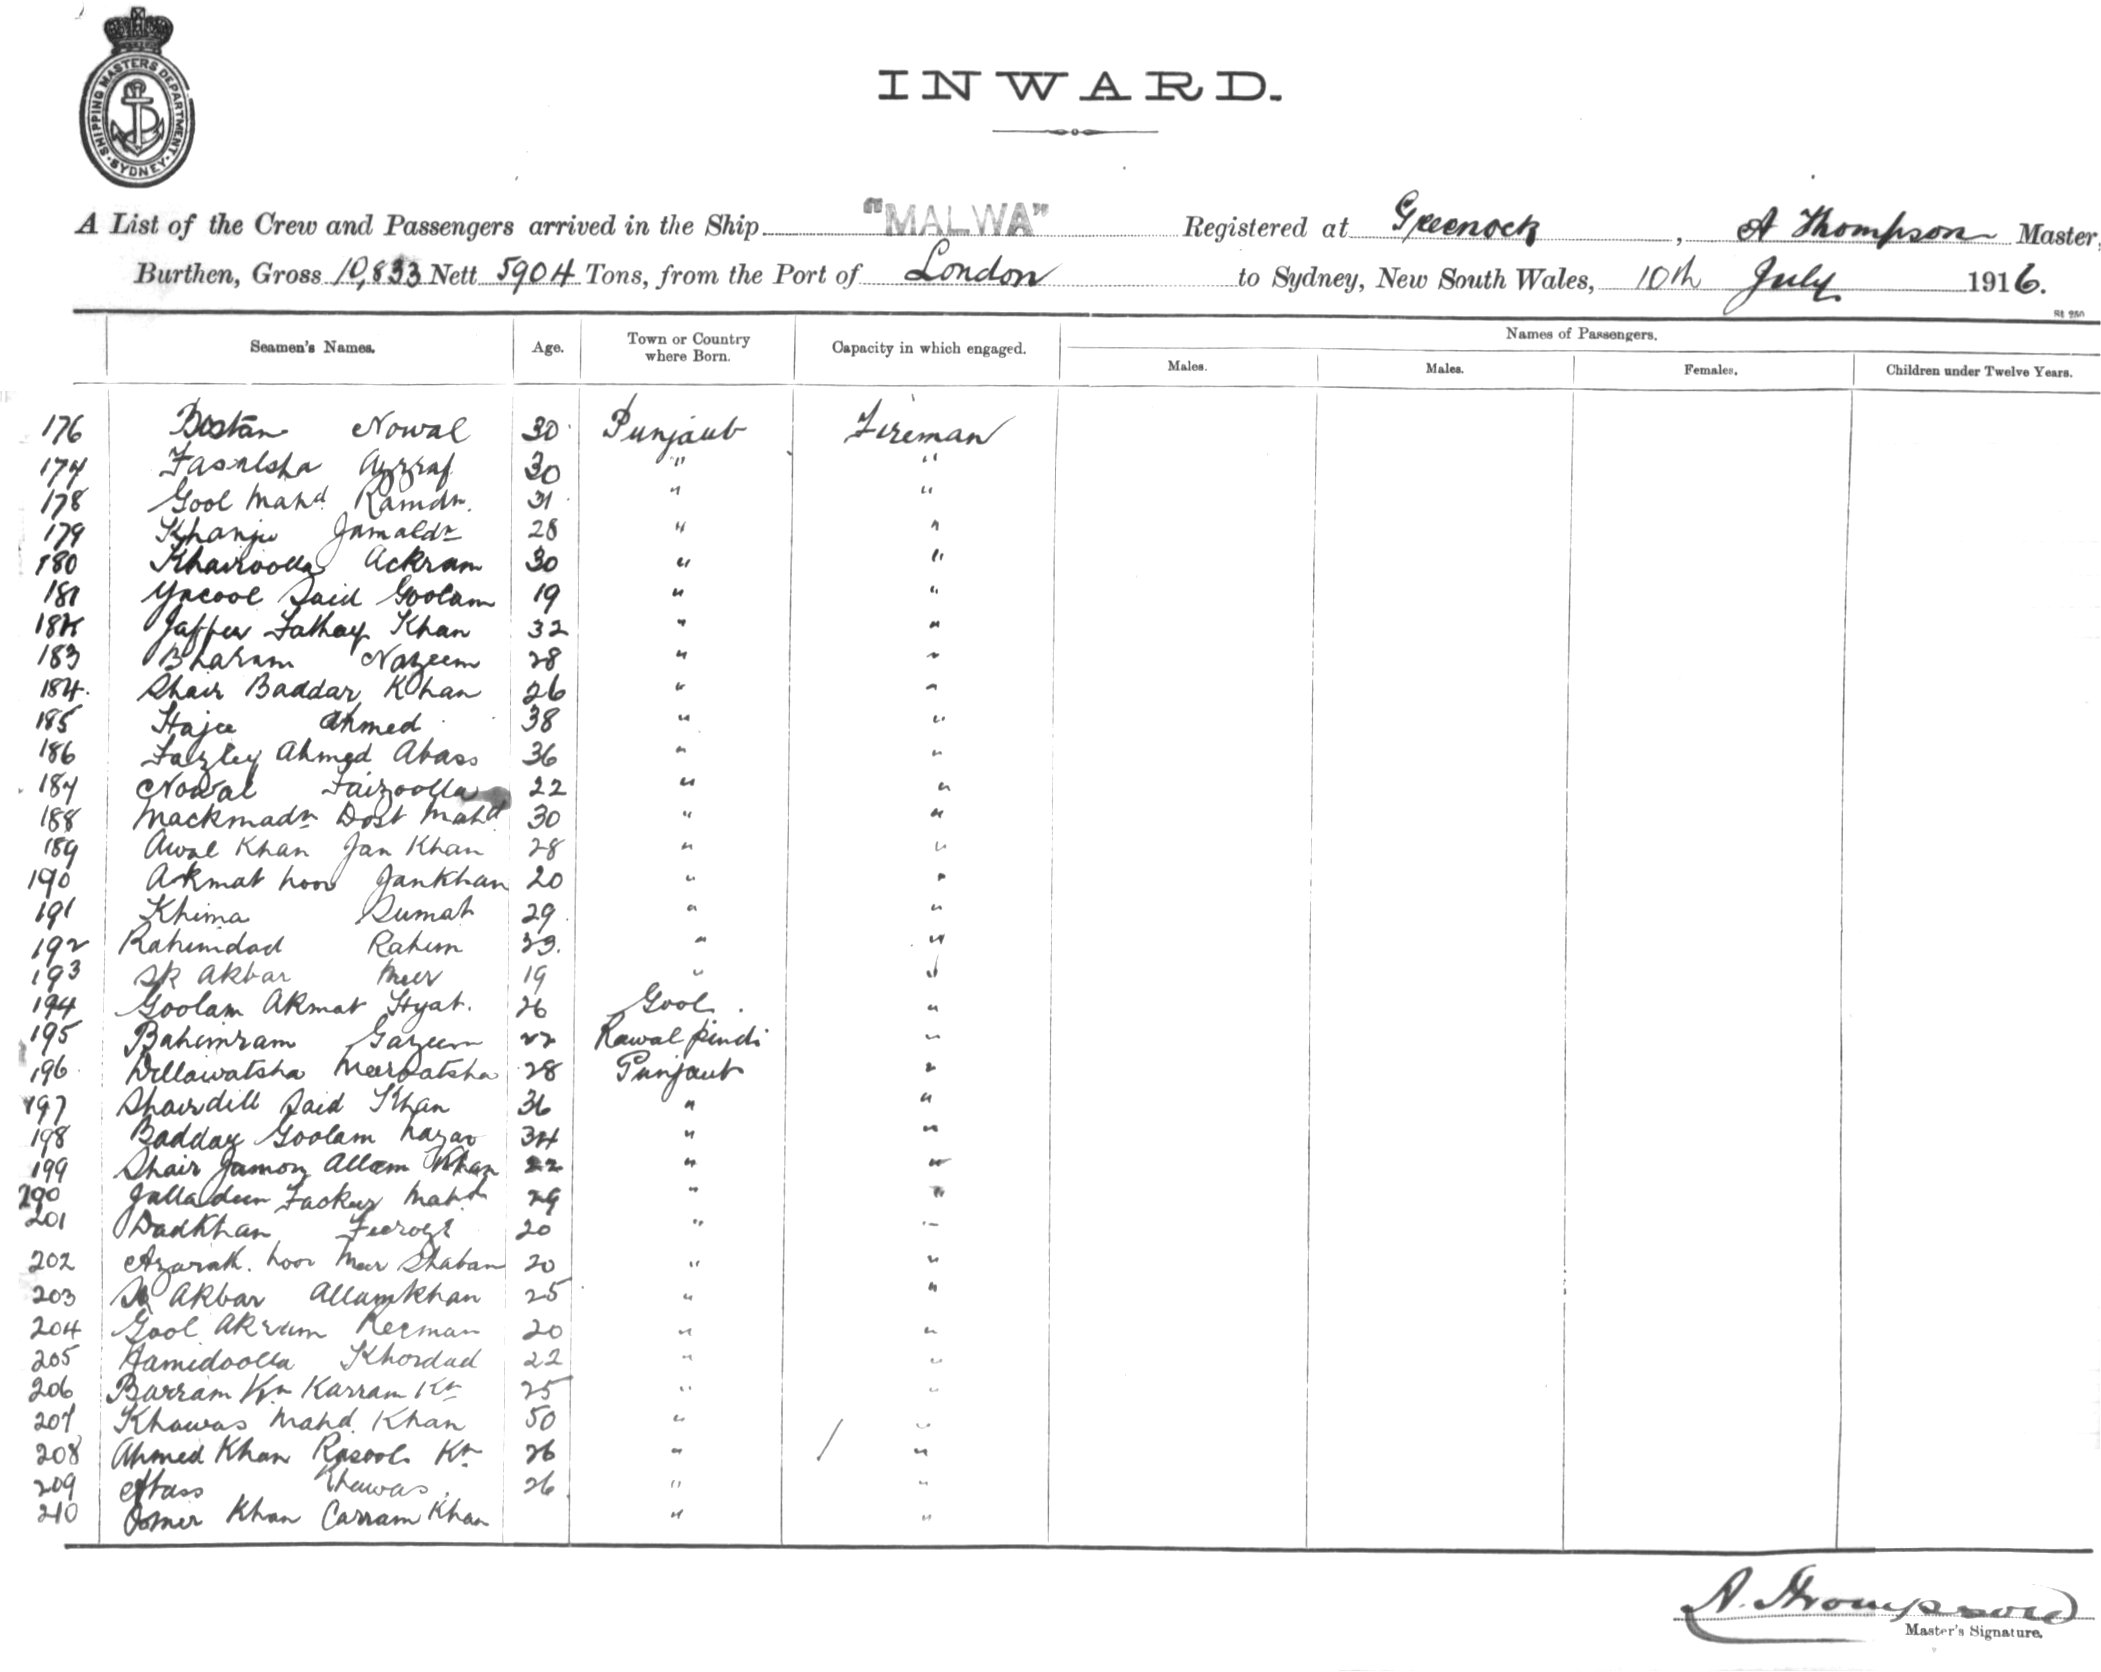 SHIPPING MASTERS DEPARTMENT. SYDNEY.
INWARD.
A List of the Crew and Passengers arrived in the Ship "MALWA" Registered at Greenock, A Thompson Master,
Burthen, Gross 10,833 Nett 5904 Tons, from the Port of London to Sydney, New South Wales, 10th July 1916.
St 250
Seamen's Names. Age. Town or Country where Born. Capacity in which engaged. Names of Passengers.
Males. Males. Females. Children under Twelve Years.
176 Bostan Nowal 30 Punjaub Fireman
177 Fasalsha 30 " "
178 Gool Mahd. Ramdn. 31 " "
179 Khanju Jamaldn 28 " "
180 Khairoolla Ackram 30 " "
181 Yacool Said Goolam 19 " "
182 Jaffer Fathay Khan 32 " "
183 Bharam Nazeem 28 " "
184. Shair Baddar Khan 26 " "
185 Hajee Ahmed 38 " "
186 Fazley Ahmed Abass 36 " "
187 Nowal Faizoolla 22 " "
188 Mackmadn Dost Mahd 30 " "
189 Awal Khan Jan Khan 28 " "
190 Akmat hoor Jankhan 20 " "
191 Khima Sumat 29 " "
192 Rahimdad Rahim 23. " "
193 Sk Akbar Meer 19 " "
194 Goolam Akmat Hyat. 26 Gool. "
195 Bahimram Gazeem 22 Rawalpindi "
196 Dillawatsha Meerbatsha 28 Punjaub "
197 Shairdill Said Khan 36 " "
198 Baddar Goolam hazar 34 " "
199 Shair Jamon Allam Khan 22 " "
200 Jalladeen Fackeer Mahd. 29 " "
201 Dadkhan Feeroze 20 " "
202 hoor Meer Shaban 20 " "
203 Akbar Allamkhan 25 " "
204 Gool Akram Reeman 20 " "
205 Hamidoolla Khordad 22 " "
206 Barram Kn Karram Kn 25 " "
207 Khawas Mahd. Khan 50 " "
208 Ahmed Khan Rasool Kn 26 " "
209 Abass Khawas. 26 " "
210 Oomer Khan Carram Khan " "
A. Thompson
Master's Signature.